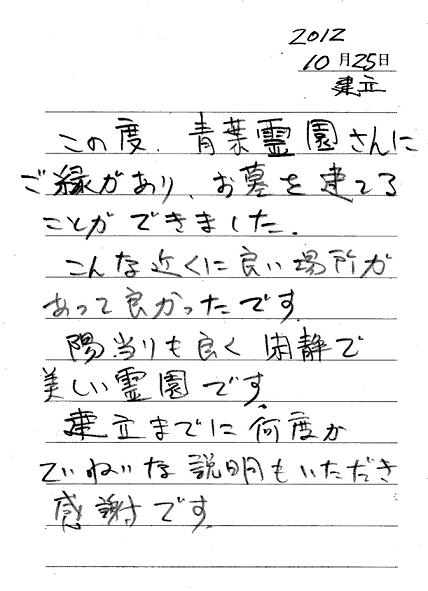 2012
10月25日
建立
この度、青葉霊園さんに
ご縁があり、お墓を建てる
ことができました。
こんな近くに良い場所が
あって良かったです。
陽当りも良く閑静で
美しい霊園です。
建立までに何度か
ていねいな説明もいただき
感謝です。